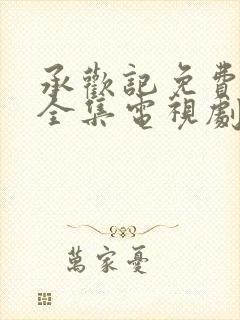 承歡記免費
全集電視劇
萬家憂